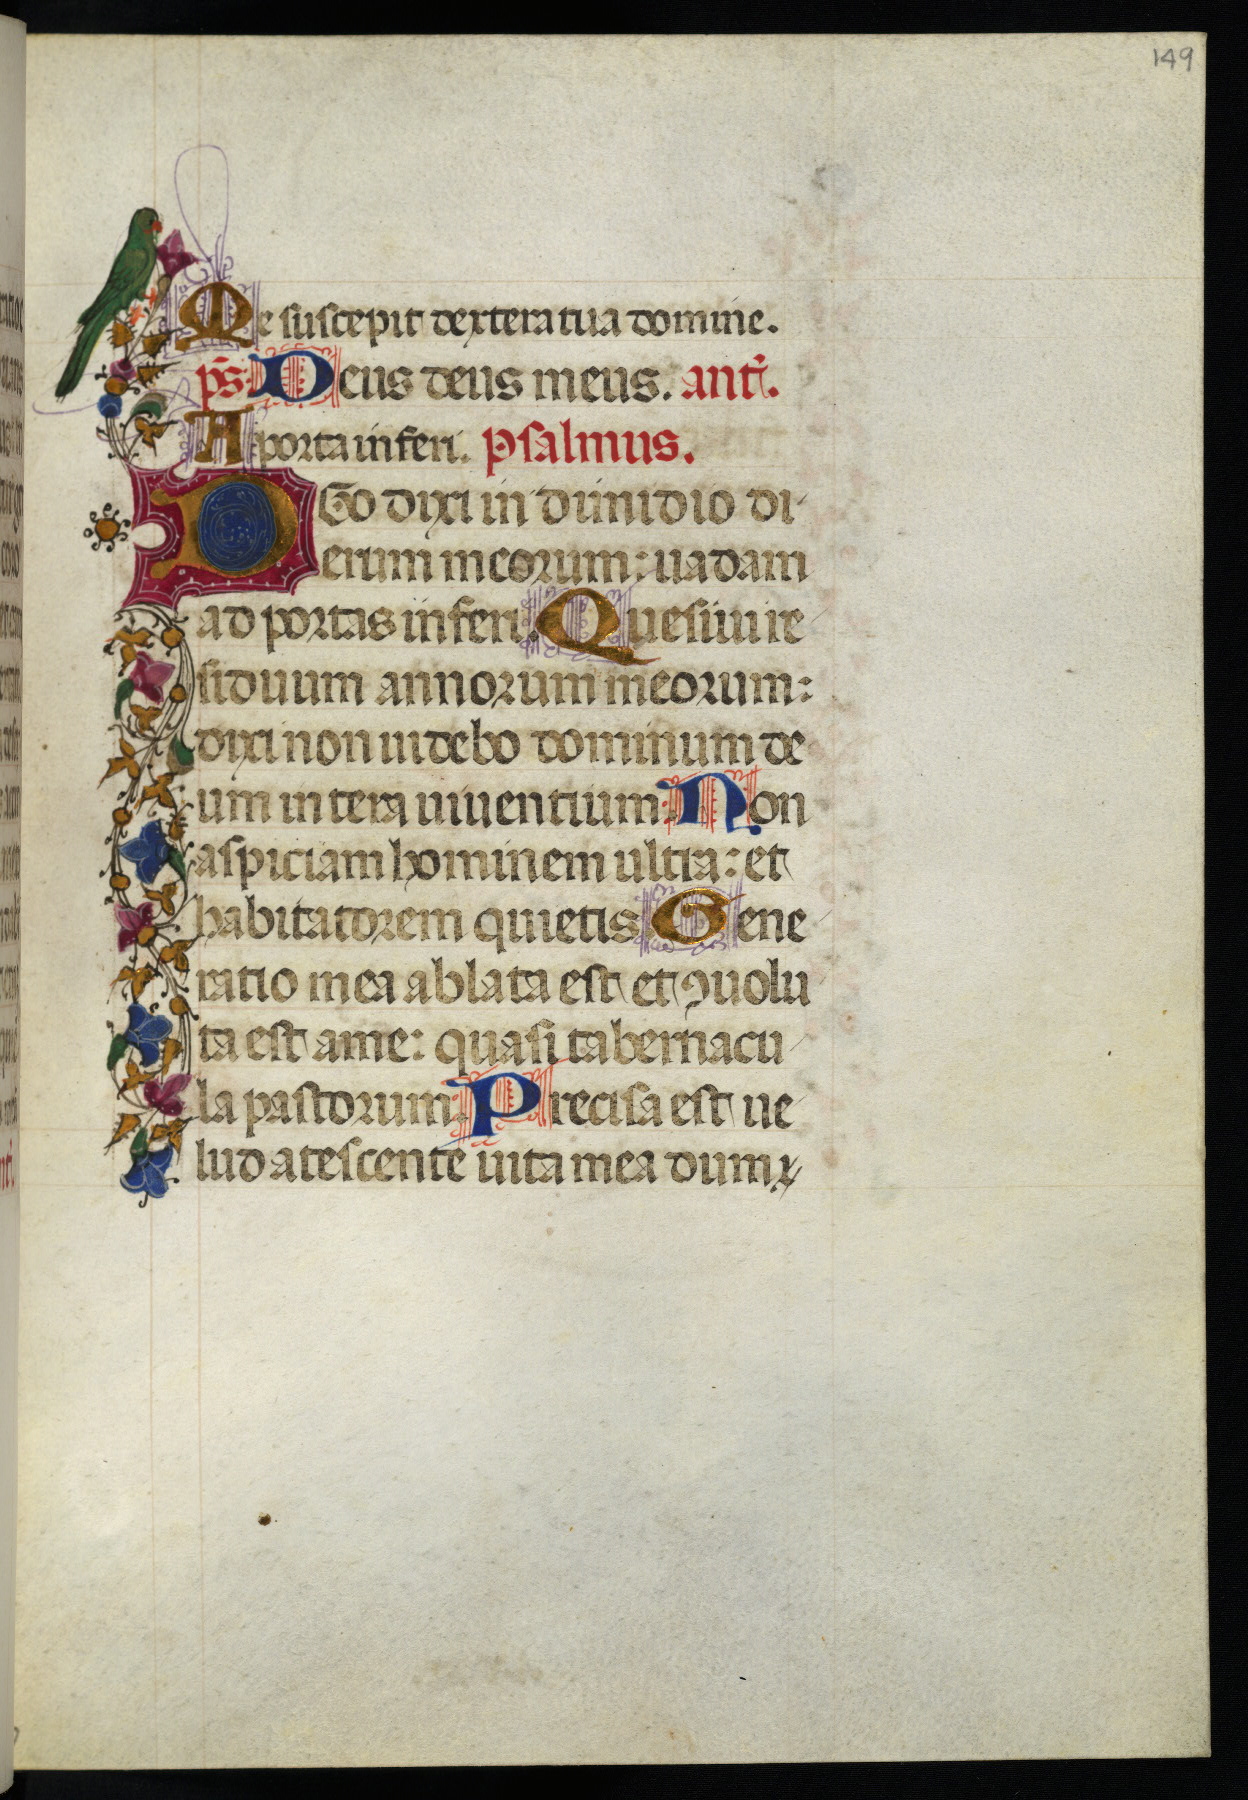 149
Me suscepit dextera tua domine.
ps. Deus deus meus. ant.
A porta inferi. Psalmus.
DGo dixi in dimidio di
erum meorum: uadam
ad portas inferi. Quesiui re
siduum annorum meorum:
dixi non uidebo dominum de
um in tera uiuentium. Non
aspiciam hominem ultra: et
habitatorem quietis. Gene
ratio mea ablata est et ꝯuolu
ta est ame: quasi tabernacu
la pastorum. Precisa est ue
lud atescente uita mea dum